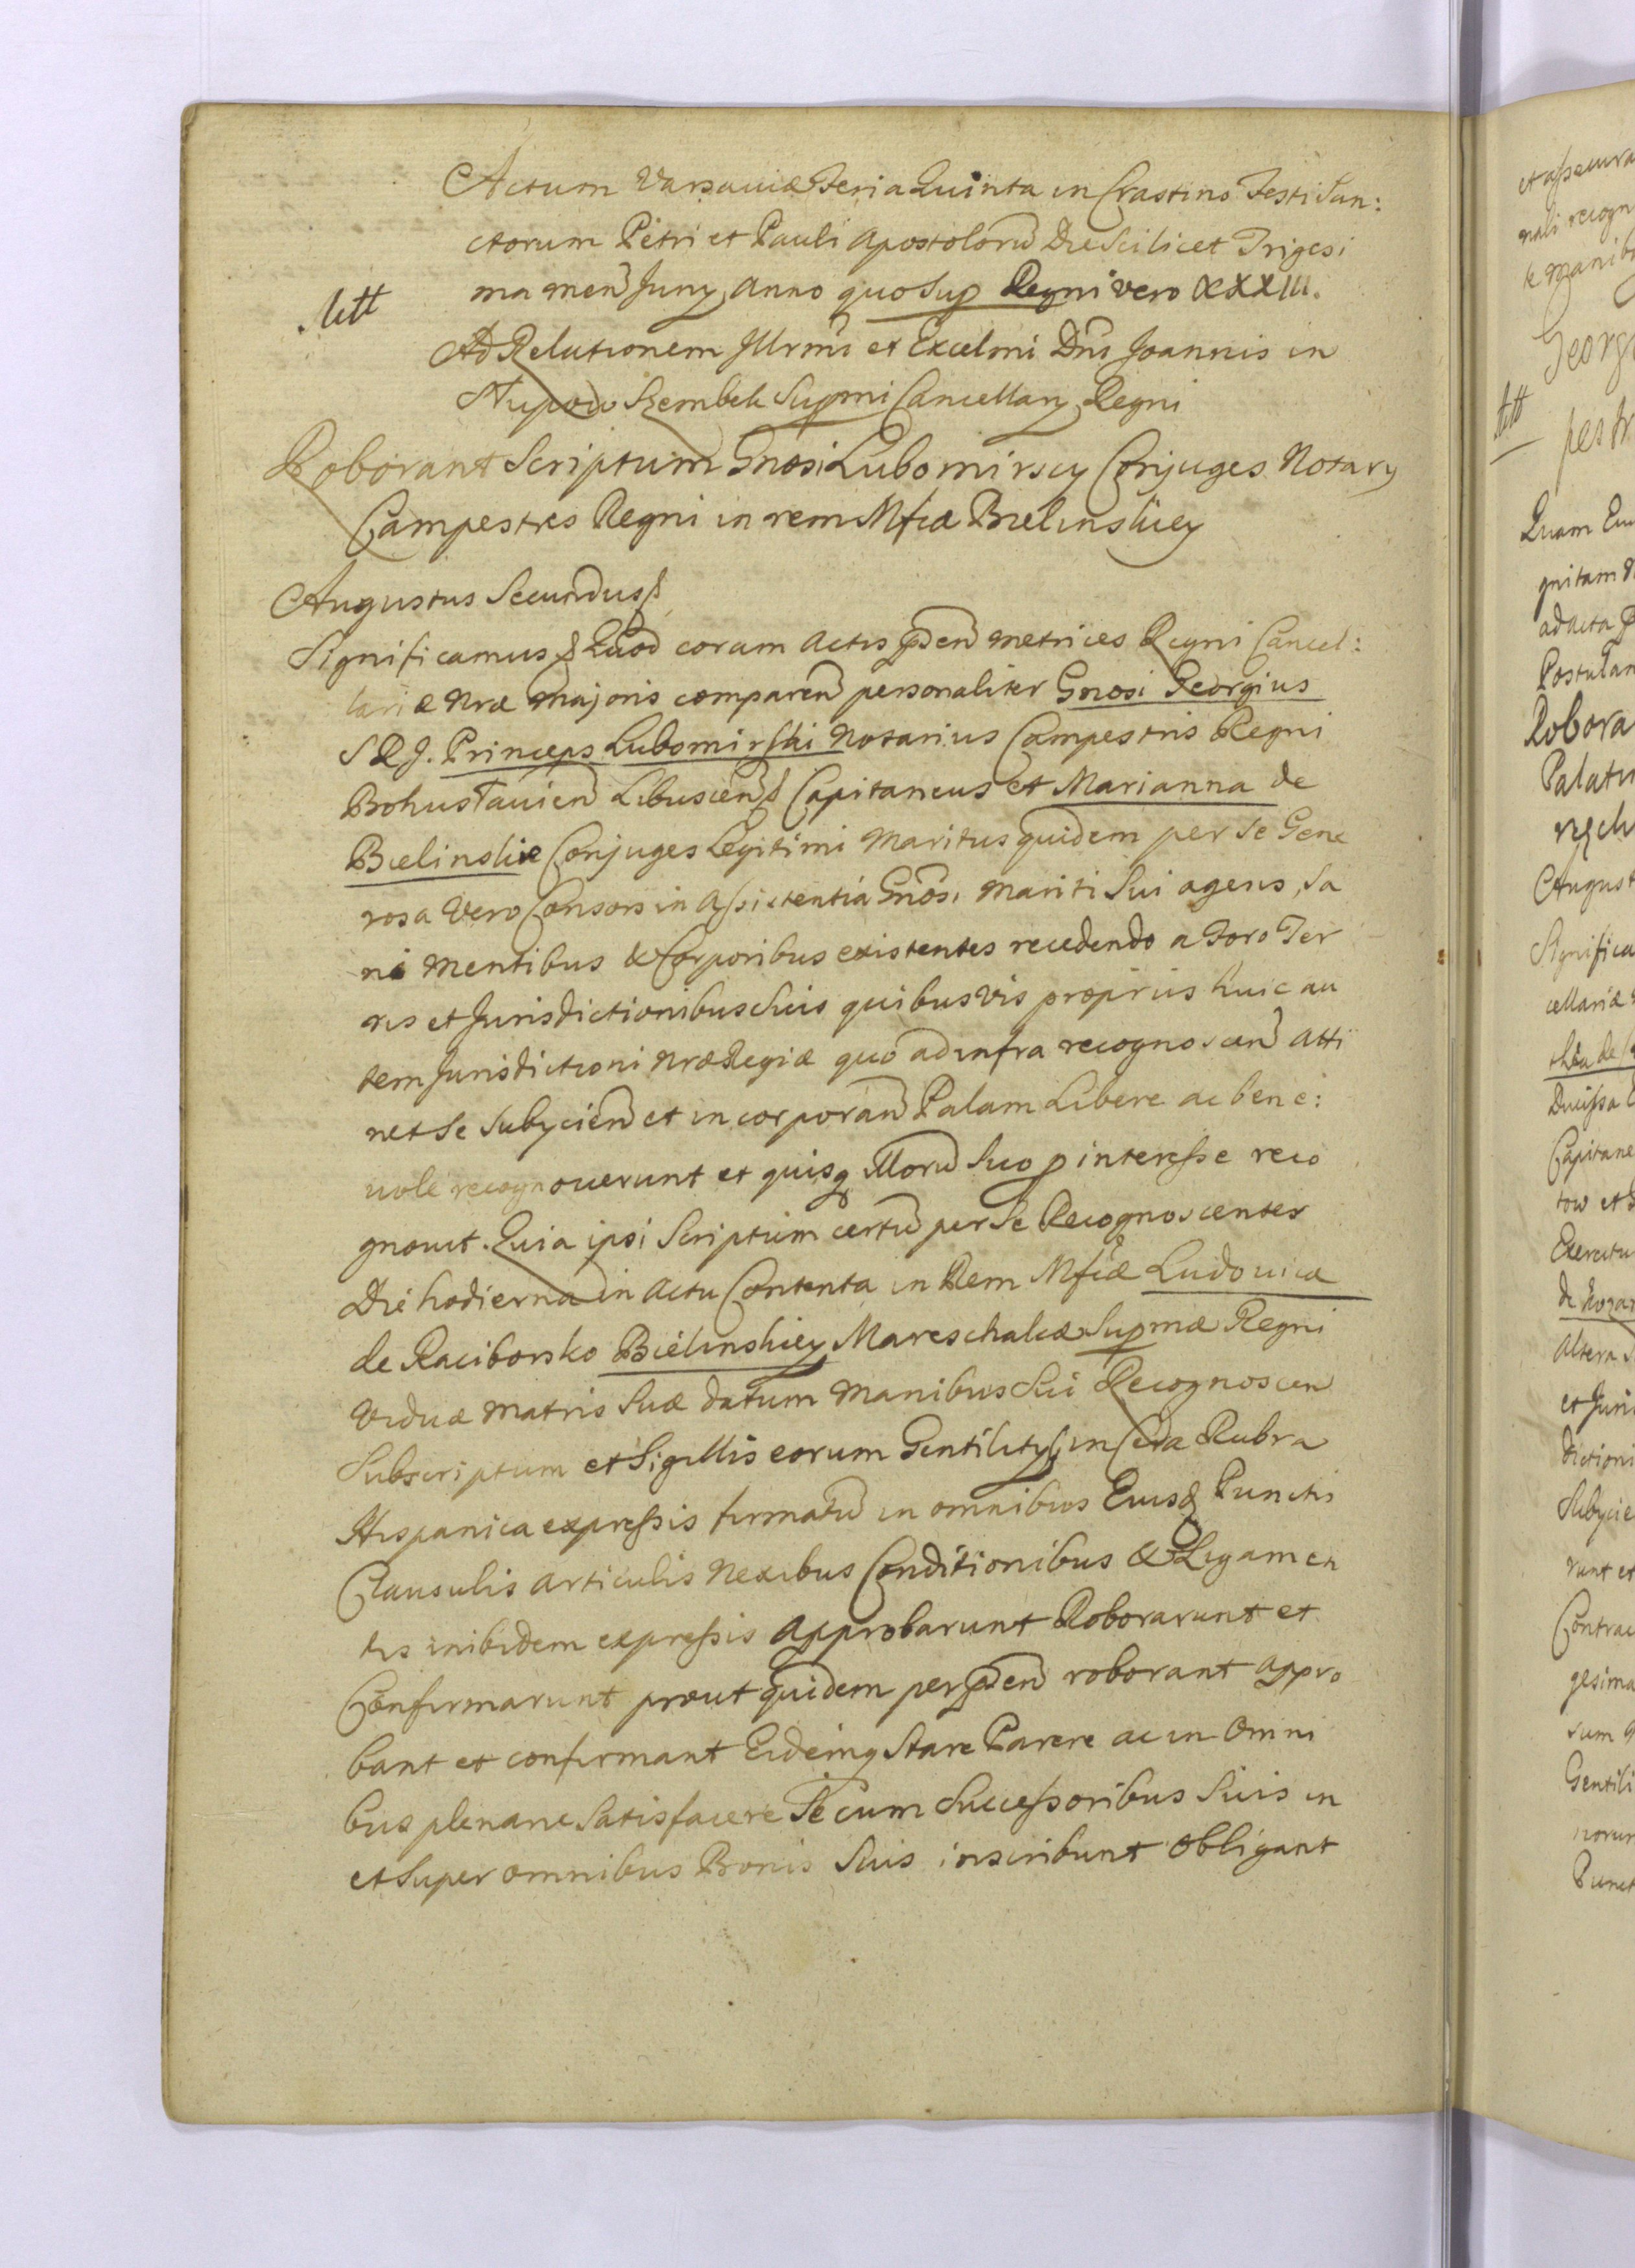 Actum Varsaviæ Feria Quinta in Crastino Festi San:
ctorum Petri et Pauli Apostolorũ Die Scilicet Trigesi
ma men̄ Juny Anno quo Sup Regni vero XXXIII.
Ad Relationem Illrmi et Excelmi Dni Joannis in
Słupow Szembek Supmi Cancellary Regni
Roborant Scriptum Gnosi Lubomirscy Conjuges Notary
Campestres Regni in rem Mfcæ Bielinskiey
Augustus Secundus
Significamus Quod coram Actis pden̄ Metrices Regni Cancel:
lariæ Nræ Majoris comparen̄ personaliter Gnosi Georgius
S R J. Princeps Lubomirski Notarius Campestris Regni
Bohuslavien̄ Libuscen̄ Capitaneus et Marianna de
Bielinskie Conjuges Legitimi Maritus quidem per se Gene
rosa Vero Consors in Assistentia Gnosi Mariti Sui agens, Sa
ni Mentibus & Corporibus existentes recedendo a Foro Ter
ris et Jurisdictionibus Suis quibusvis proprijs huic au
tem Jurisdictioni Nræ Regiæ quo ad infra recognoscen̄ atti
net Se Subijcien̄ et incorporan̄ Palam Libere ac bene:
vole recognoverunt et quisq Illorũ Suo p interesse reco
gnovit. Quia ipsi Scriptum certũ per Se Recognoscentes
Die hodierna in Actu Contenta in Rem Mfcæ Ludovicæ
de Raciborsko Bielinskiey Mareschalcæ Supmæ Regni
Viduæ Matris Suæ datum Manibus Sui Recognoscen
Subscriptum et Sigillis eorum Gentilitys in Cera Rubra
Hispanica expressis firmatũ in omnibus Eiusq Punctis
Clausulis Articulis Nexibus Conditionibus & Ligamen
tis inibidem expressis Approbarunt Roborarunt et
Confirmarunt prout quidem per pden̄ roborant appro
bant et confirmant Eidemq Stare Parere ac in Omni
bus plenarie Satisfacere Se cum Successoribus Suis in
et Super omnibus Bonis Suis inscribunt Obligant